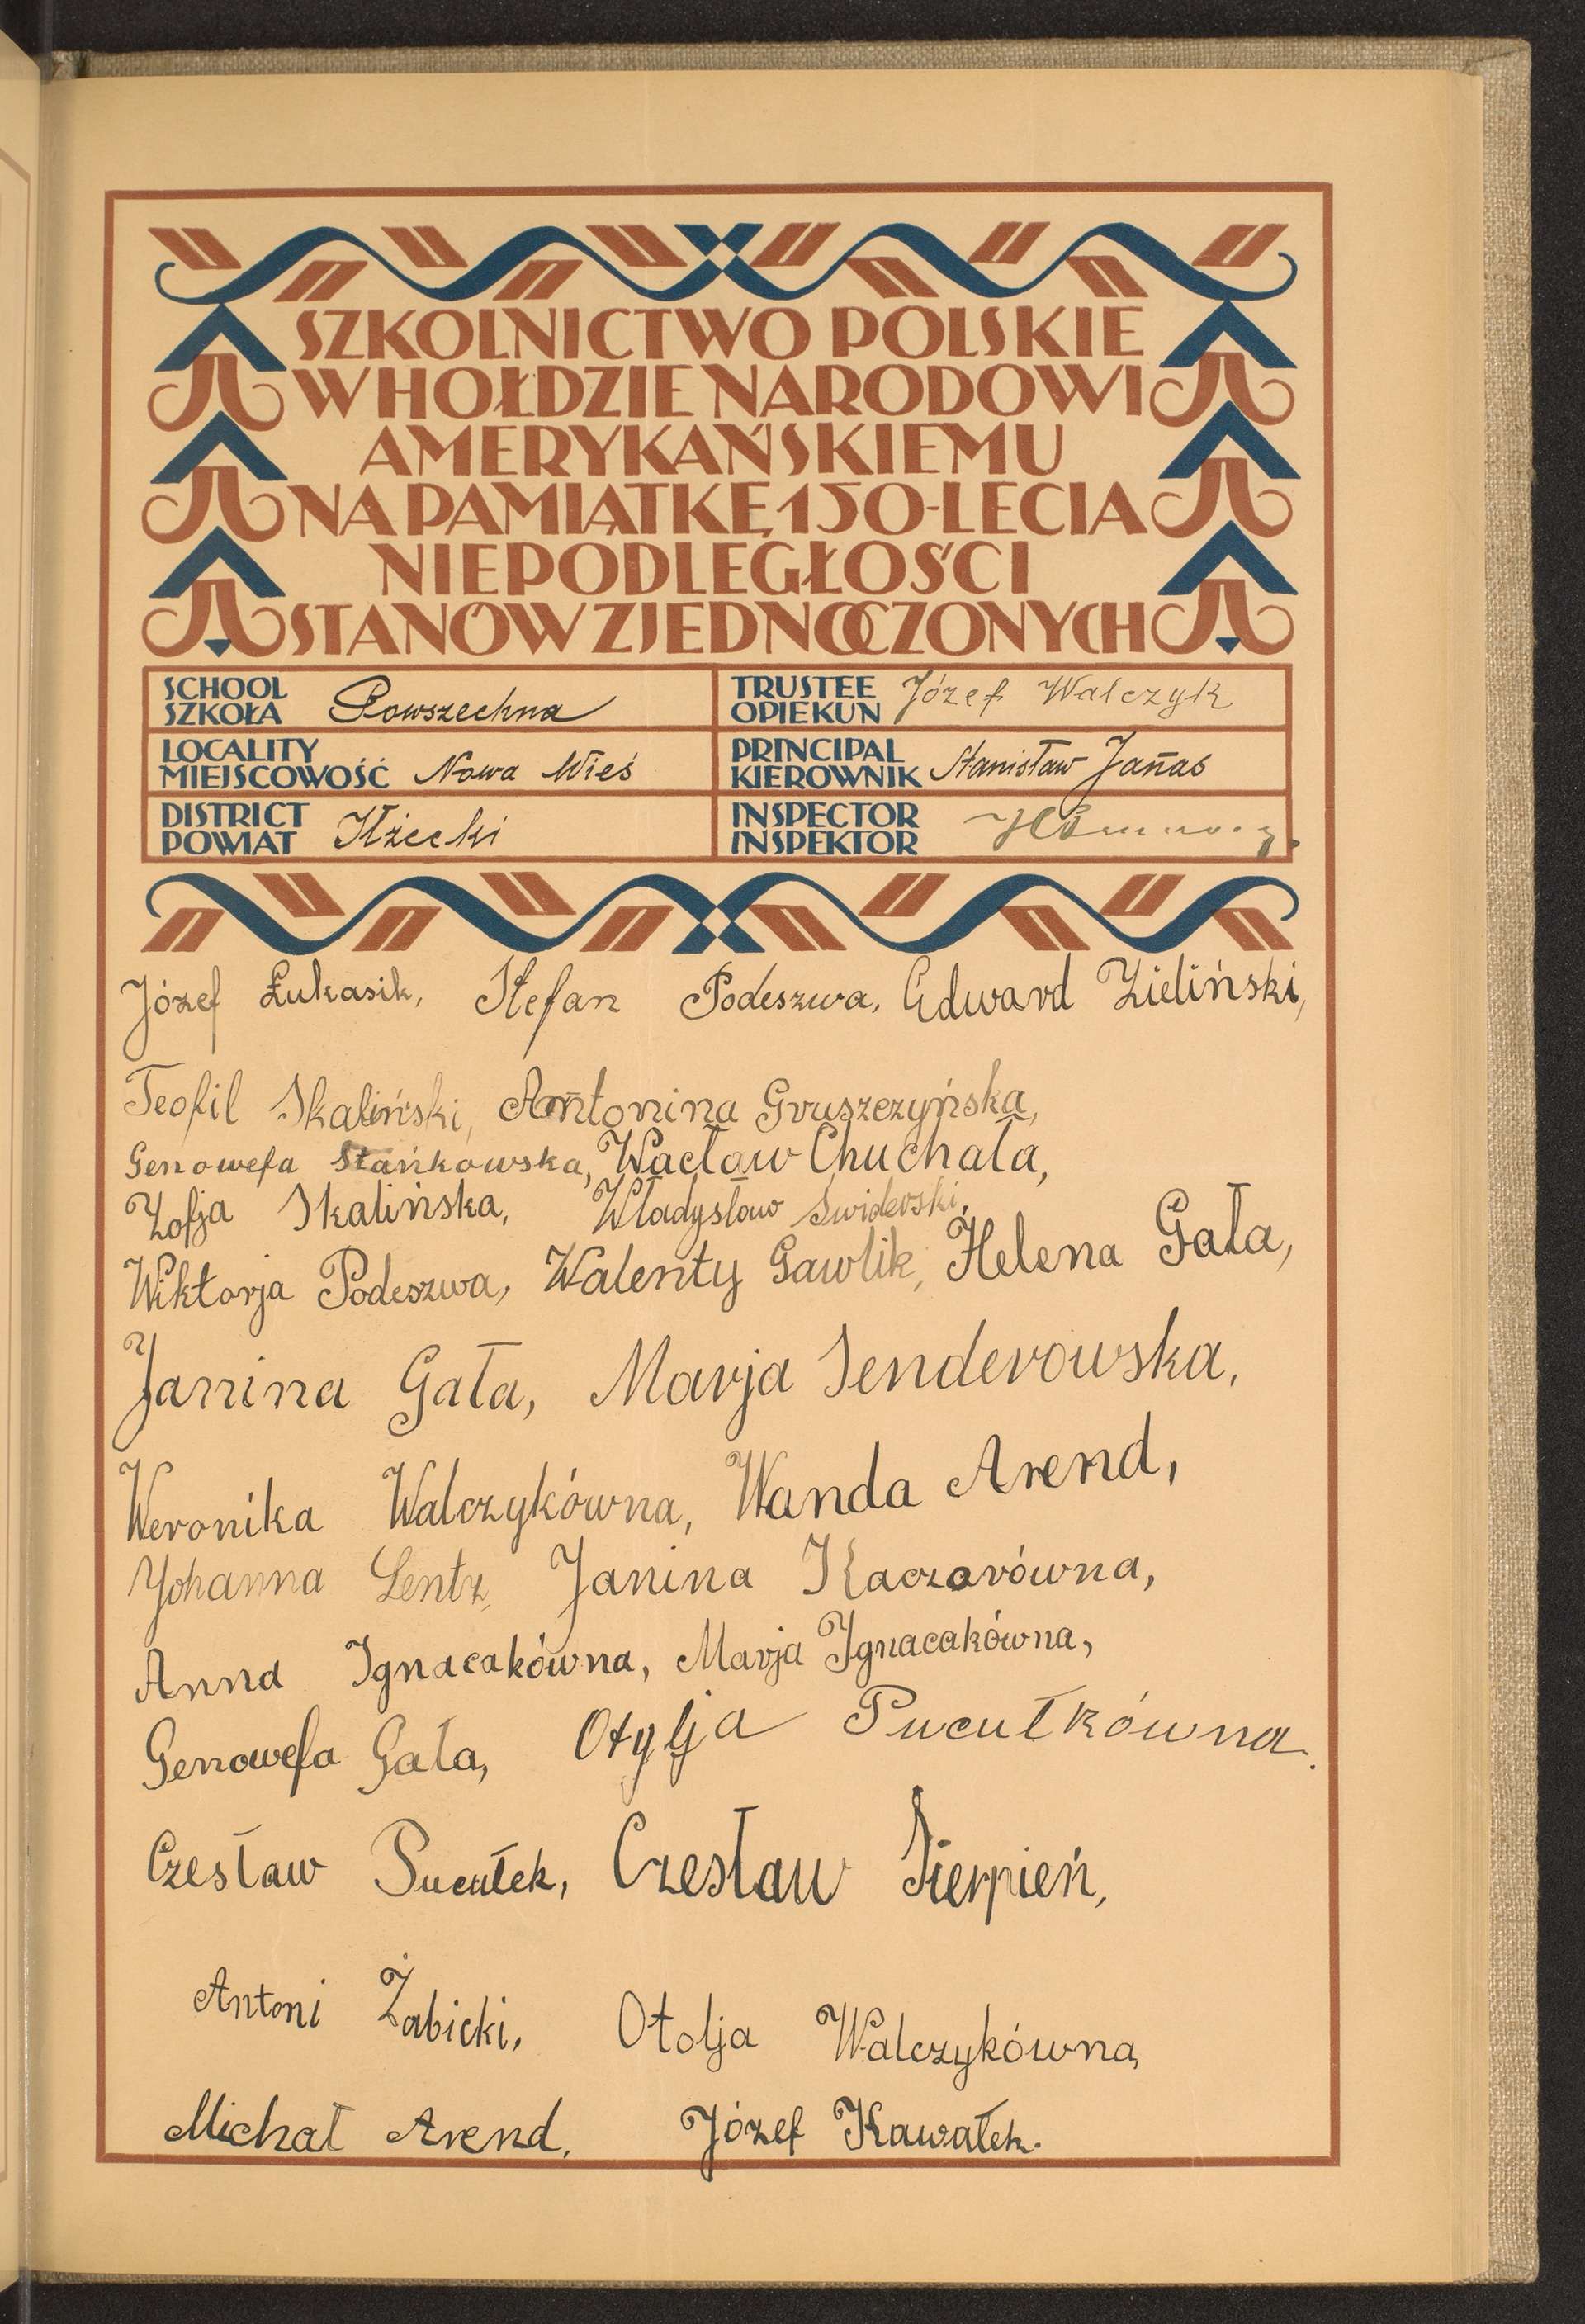 SZKOLNICTWO POLSKIE
W HOŁDZIE NARODOWI
AMERYKAŃSKIEMU
NA PAMIĄTKĘ 150-LECIA
NIEPODLEGŁOŚCI
STANÓW ZJEDNOCZONYCH
SCHOOL
SZKOŁA Powszechna
TRUSTEE
OPIEKUN Józef Walczyk
LOCALITY
MIEJSCOWOŚĆ Nowa Wieś
PRINCIPAL
KIEROWNIK Stanisław Jańas
DISTRICT
POWIAT Iłżecki
INSPECTOR
INSPEKTOR
Józef Łukasik, Stefan Podeszwa, Edward Zieliński,
Teofil Skaliński, Antonina Gruszczyńska,
Genowefa Stańkowska, Wacław Chuchała,
Zofja Skalińska, Władysław Swiderski,
Wiktorja Podeszwa, Walenty Gawlik, Helena Gała,
Janina Gała, Marja Senderowska,
Weronika Walczykówna, Wanda Arend,
Yohanna Lentz, Janina Kaczorówna,
Anna Ignacakówna, Marja Ignacakówna,
Genowefa Gała, Otylja Pucułkówna.
Czesław Pucułek, Czesław Sierpień,
Antoni Żabicki, Otolja Walczykówna,
Michał Arend, Józef Kawałek.